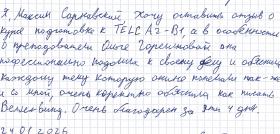 Я, Максим Сарнавский, Хочу оставить отзыв о
курсе подготовка к TELC A2-B1, а в особенности
о преподавателе Ольге Горенитовой она
профессионально подошла к своему делу и объяснила
каждому тему которую они понимали так-же
и со мной, очень корректно объяснила как писать
Очень благодарен за
24.01.2026